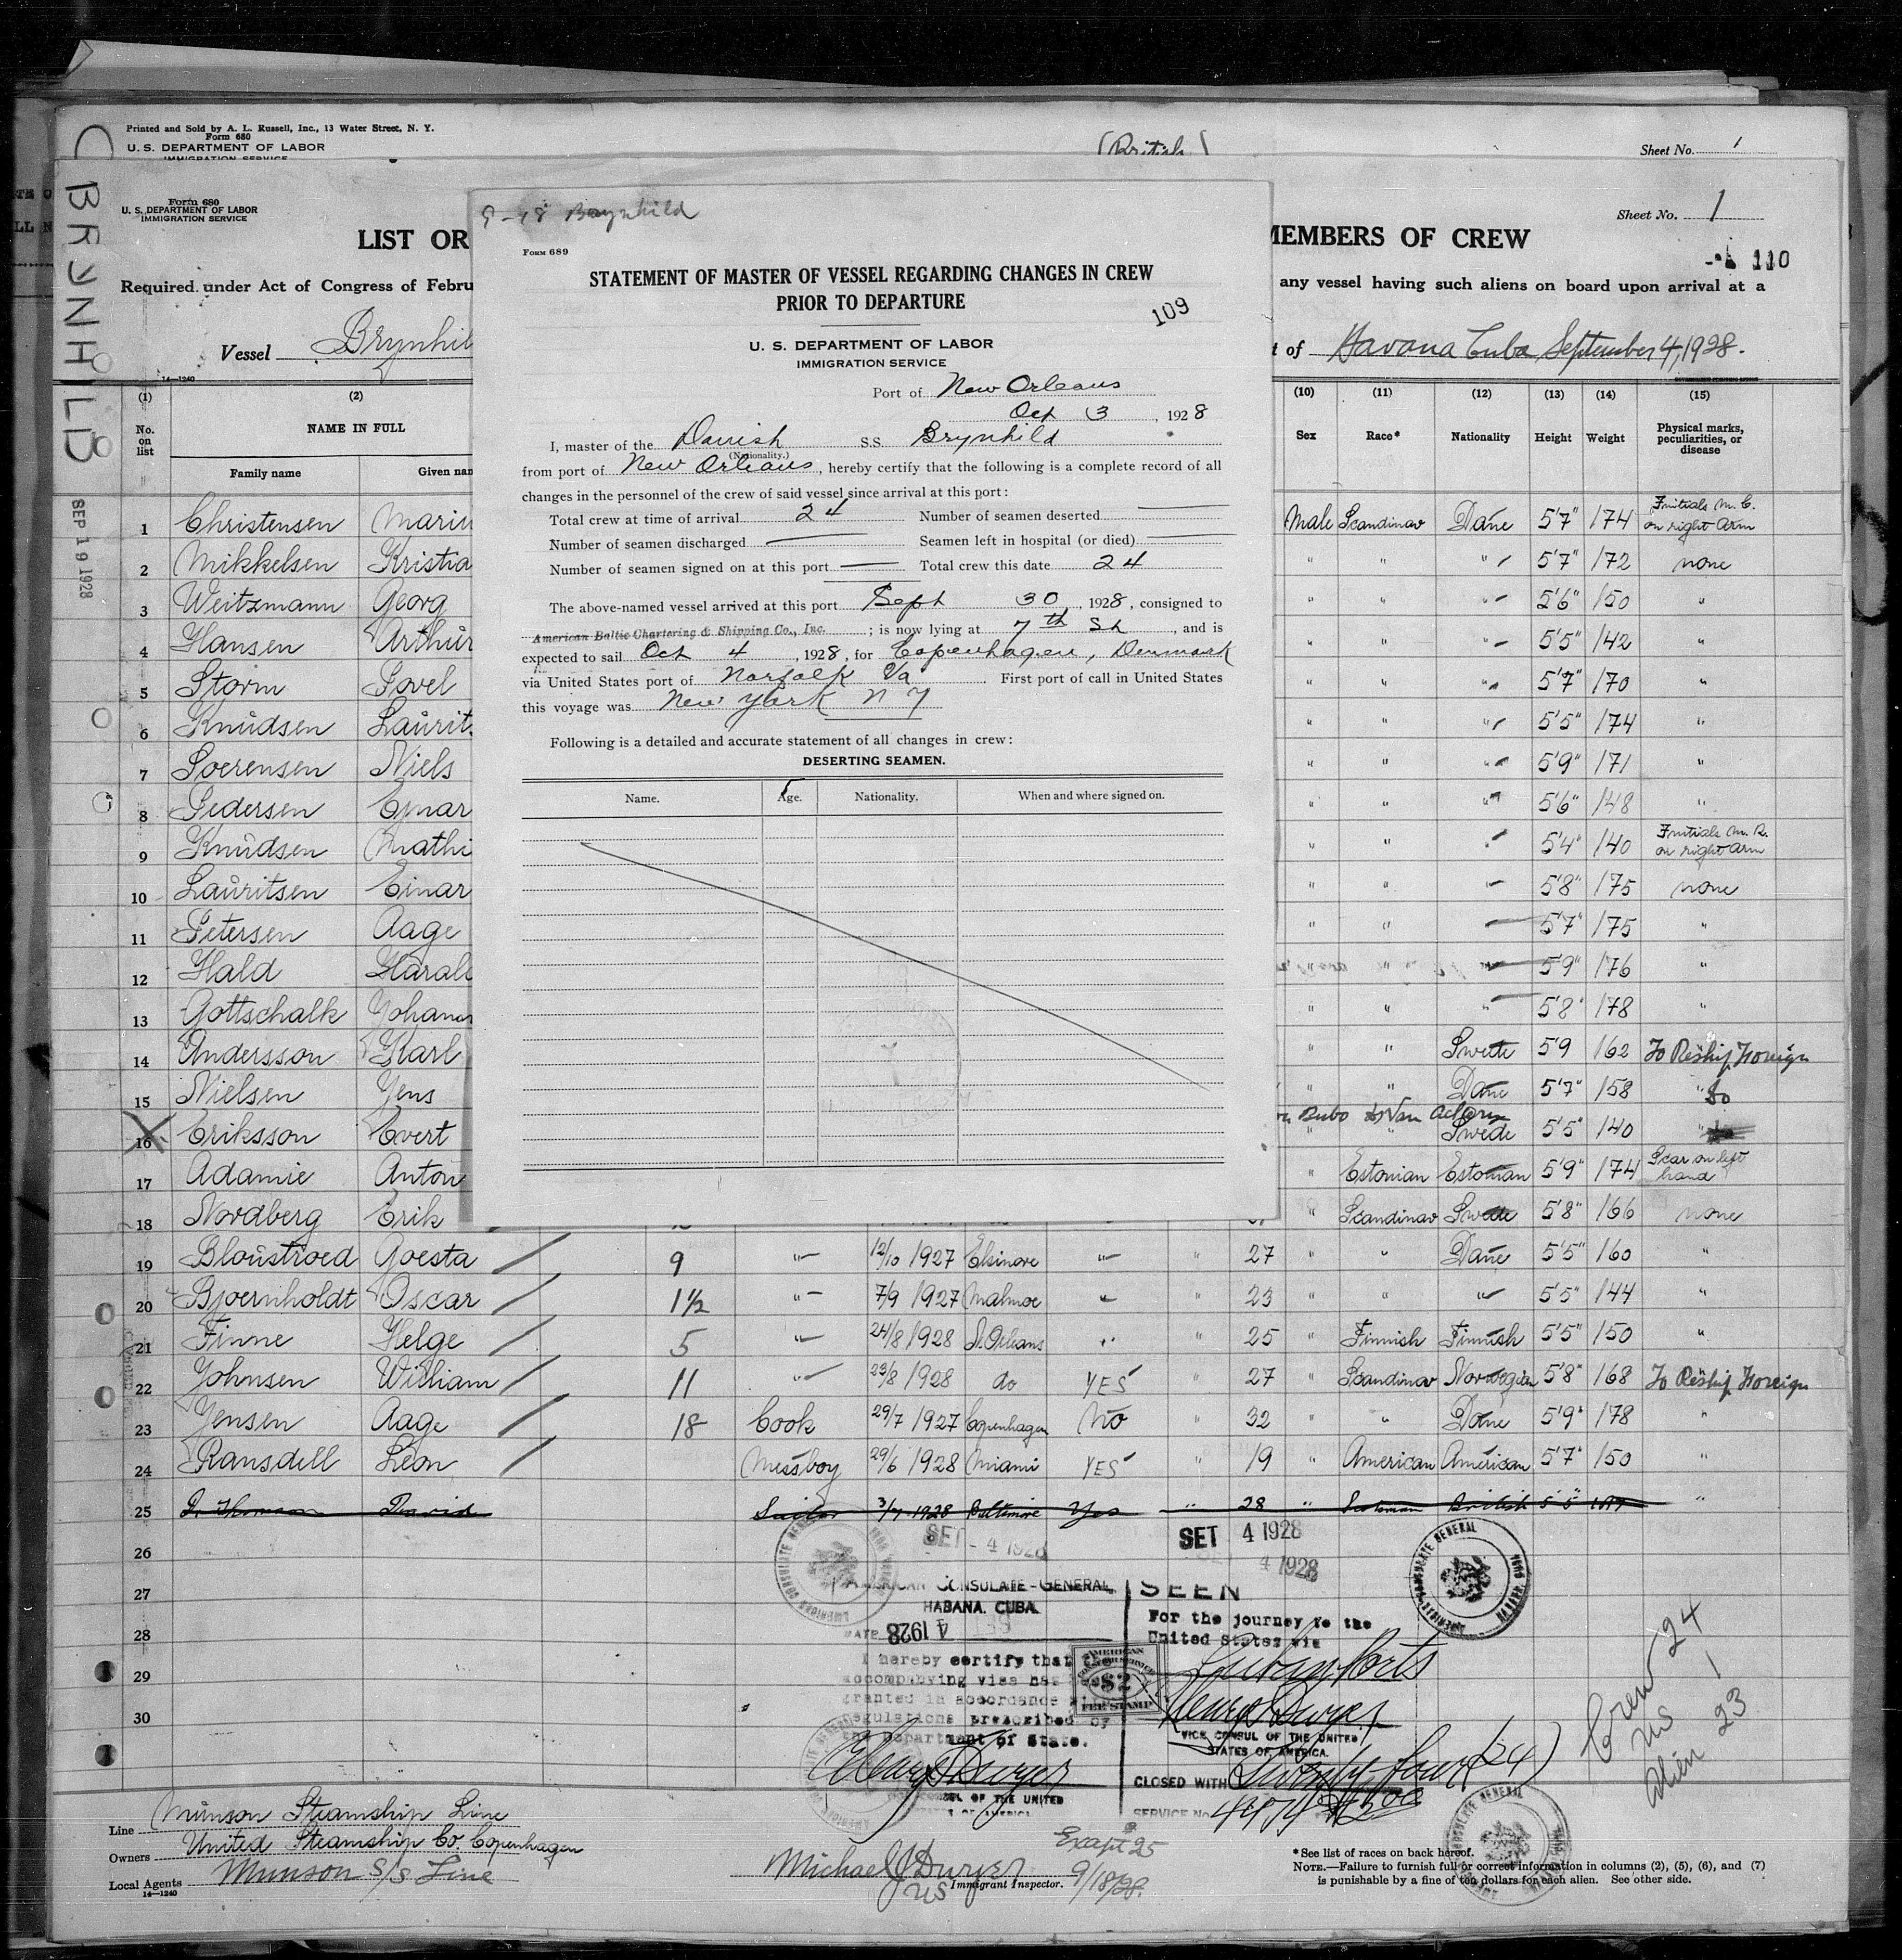 Printed and Sold by A. L. Russell, Inc., 13 Water Street, N. Y.
Form 680
U. S. DEPARTMENT OF LABOR
IMMIGRATION SERVICE
(British)
Sheet No. 1
BRYNHILD
SEP 19 1928
Form 680
U. S. DEPARTMENT OF LABOR
IMMIGRATION SERVICE
Sheet No. 1
LIST OR
MEMBERS OF CREW
110
Required under Act of Congress of Febru
any vessel having such aliens on board upon arrival at a
Vessel Brynhil
t of Havana Cuba September 4, 1928.
14-1240
9-18 Brynhild
FORM 689
STATEMENT OF MASTER OF VESSEL REGARDING CHANGES IN CREW
PRIOR TO DEPARTURE
109
U. S. DEPARTMENT OF LABOR
IMMIGRATION SERVICE
Port of New Orleans
Oct 3, 1928
I, master of the Danish S.S. Brynhild
(Nationality.)
from port of New Orleans, hereby certify that the following is a complete record of all
changes in the personnel of the crew of said vessel since arrival at this port:
Total crew at time of arrival 24 Number of seamen deserted —
Number of seamen discharged — Seamen left in hospital (or died) —
Number of seamen signed on at this port — Total crew this date 24
The above-named vessel arrived at this port Sept 30, 1928, consigned to
American Baltic Chartering & Shipping Co., Inc.; is now lying at 7th St, and is
expected to sail Oct 4, 1928, for Copenhagen, Denmark
via United States port of Norfolk Va. First port of call in United States
this voyage was New York N Y
Following is a detailed and accurate statement of all changes in crew:
DESERTING SEAMEN.
Name. Age. Nationality. When and where signed on.
(1) (2) (10) (11) (12) (13) (14) (15)
No. on list NAME IN FULL Sex Race* Nationality Height Weight Physical marks, peculiarities, or disease
Family name Given nan
1 Christensen Mariu Male Scandinav Dane 5'7" 174 Initials M. C. on right arm
2 Mikkelsen Kristia " " " 5'7" 172 none
3 Weitzmann Georg " " " 5'6" 150 "
4 Hansen Arthur " " " 5'5" 142 "
5 Storm Povel " " " 5'7" 170 "
6 Knudsen Laurits " " " 5'5" 174 "
7 Soerensen Niels " " " 5'9" 171 "
8 Pedersen Ejnar " " " 5'6" 148 "
9 Knudsen Mathi " " " 5'4" 140 Initials M. K. on right arm
10 Lauritsen Einar " " " 5'8" 175 none
11 Petersen Aage " " " 5'7" 175 "
12 Hald Harald " " " 5'9" 176 "
13 Gottschalk Johann " " " 5'8" 178 "
14 Andersson Karl " " Swede 5'9 162 To Reship Foreign
15 Nielsen Jens " " Dane 5'7" 158 " Do
16 Eriksson Evert " Swede 5'5" 140 "
17 Adamie Anton " Estonian Estonian 5'9" 174 Scar on left hand
18 Nordberg Erik " Scandinav Swede 5'8" 166 none
19 Bloustroed Goesta 9 " 12/10 1927 Elsinore " " 27 " " Dane 5'5" 160 "
20 Bjoernholdt Oscar 1½ " 7/9 1927 Malmoe " " 23 " " " 5'5" 144 "
21 Finne Helge 5 " 24/8 1928 N. Orleans " " 25 " Finnish Finnish 5'5" 150 "
22 Johnsen William 11 " 23/8 1928 do YES " 27 " Scandinav Norwegian 5'8" 168 To Reship Foreign
23 Jensen Aage 18 Cook 29/7 1927 Copenhagen NO " 32 " " Dane 5'9" 178 "
24 Ransdell Leon Messboy 29/6 1928 Miami YES " 19 " American American 5'7" 150 "
25 Thomson David Sailor 3/7 1928 Baltimore Yes " 28 " Scotsman British 5'5" "
26
27
28
29
30
SET - 4 1928
SET 4 1928
SET 4 1928
AMERICAN CONSULATE-GENERAL
HABANA, CUBA
DATE 4 1928
I hereby certify that the
accompanying visa has
granted in accordance wi
regulations prescribed by
the Department of State.
Henry Dwyer
CONSUL OF THE UNITED
STATES OF AMERICA
AMERICAN
CONSULAR SERVICE
$2
FEE STAMP
SEEN
For the journey to the
United States via
Cuban Ports
Henry Dwyer
VICE CONSUL OF THE UNITED
STATES OF AMERICA.
CLOSED WITH Twenty four (24)
SERVICE No.
AMERICAN CONSULATE GENERAL
Crew 24
US 1
Alien 23
Line Munson Steamship Line
Owners United Steamship Co. Copenhagen
Local Agents Munson S/S Line
14-1240
Michael J Dwyer
US Immigrant Inspector.
Except 25
9/18/28.
*See list of races on back hereof.
NOTE.—Failure to furnish full or correct information in columns (2), (5), (6), and (7)
is punishable by a fine of ten dollars for each alien. See other side.